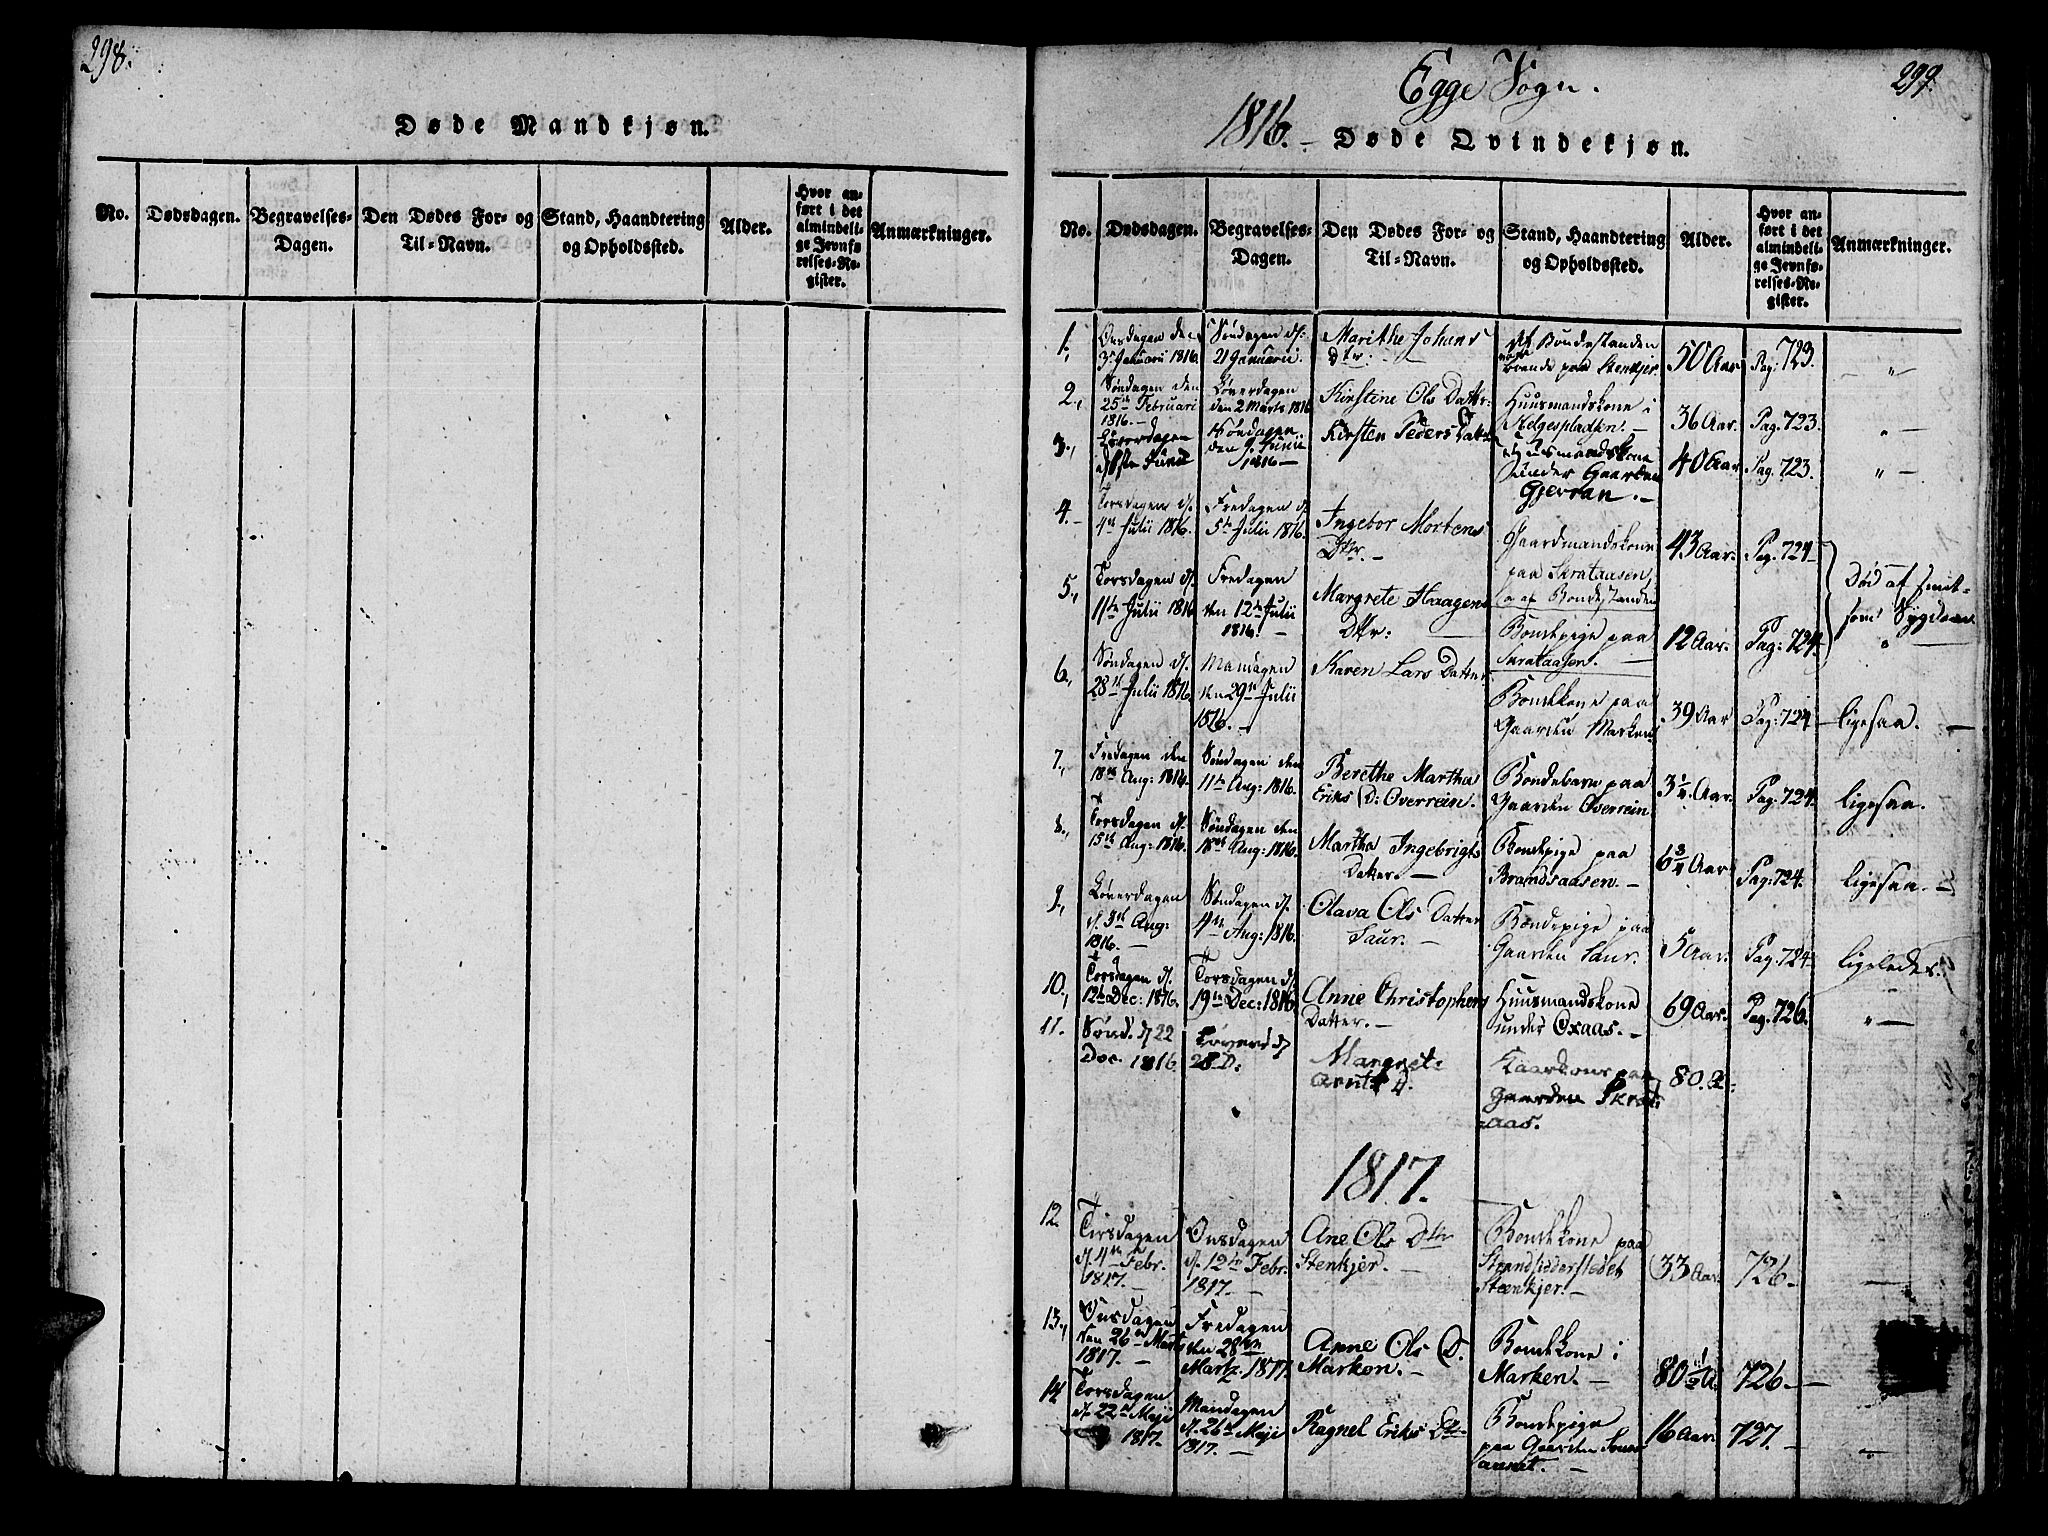 298.
Døde Mandkjøn.
No.
Dødsdagen.
Begravelses-
Dagen.
Den Dødes For- og
Til-Navn.
Stand, Haandtering
og Opholdssted.
Alder.
Hvor an-
ført i det
almindeli-
ge Jevnfø
relses-Re-
gister.
Anmærkninger.
Egge Sogn.
299.
1816. – Døde Qvindekjøn.
No.
Dødsdagen.
Begravelses-
Dagen.
Den Dødes For- og
Til-Navn.
Stand, Haandtering
og Opholdssted.
Alder.
Hvor an-
ført i det
almindeli-
ge Jevnfø-
relses-Re-
gister.
Anmærkninger.
1.
Onsdagen den
3 Januarii 1816.
Søndagen d.
21 Januarii.
Marithe Johans
Dtr.
Af Bondestanden
boende paa Stenkjer.
50 Aar
Pag: 723.
"
2.
Søndagen den
25de Februari
1816. –
Løverdagen
den 2 Marts 1816
Kirstine Ols Datter:
Huusmandskone i
Helgespladsen. –
36 Aar.
Pag. 723.
" –
3.
Løverdagen
Junii
Søndagen
den 9. Junii
1816 –
Kirsten Peders Datter
Huusmandskone
under Gaarden
Gjevran. –
40 Aar
Pag. 723.
" –
4. –
Torsdagen d.
4de Julii 1816.
Fredagen d.
5te Julii 1816.
Ingebor Mortens
Dtr. –
Gaardmandskone
paa Skrataasen,
af Bondestanden
43 Aar.
Pag. 724
Død af smit-
som Sygdom
5.
Torsdagen d.
11te Julii 1816
Fredagen
den 12te Julii
1816. –
Margrete Haagens
Dtr:
Bondepige paa
Skrataasen.
12 Aar.
Pag: 724.
" –
6.
Søndagen d.
28de Julii 1816
Mandagen
den 29de Julii
1816. –
Karen Lars Datter
Bondekone paa
Gaarden Marken.
39 Aar
Pag: 724
ligesaa. –
7.
Fredagen den
Aug: 1816.
Søndagen den
11te Aug: 1816.
Berethe Martha
Eriks D: Overrein.
Bondebarn paa
Gaarden Overrein.
3 1/4 Aar.
Pag: 724.
ligesaa.
8.
Torsdagen d.
15de Aug: 1816.
Søndagen den
18de Aug: 1816.
Martha Ingebrigts
Datter. –
Bondepige paa
Brandsaasen. –
6 3/4 Aar
Pag: 724.
ligesaa. –
9.
Løverdagen
d. 3de Aug:
1816. –
Søndagen d.
4de Aug: 1816.
Olava Ols Datter
Saur. –
Bondepige paa
Gaarden Saur.
5 Aar.
Pag: 724
ligeledes.
10.
Torsdagen d.
12te Dec: 1816.
Torsdagen d.
19de Dec: 1816.
Anne Christophers
Datter. –
Huusmandskone
under Oxaas. –
69 Aar.
Pag. 726.
" –
11.
Sønd. d 22
Dec. 1816
Løverd d
28 D:
Margrete
Arnts d.
Kaarkone paa
Gaarden Skrat-
aas.
80. A:
1817.
12.
Tirsdagen
d. 4de Febr.
1817. –
Onsdagen
d. 12te Febr.
1817. –
Ane Ols Dtr
Stenkjer. –
Bondekone paa
Strandsidderstedet
Steenkjer. –
33 Aar.
726 –
13.
Onsdagen
den 26de Marts
1817. –
Fredagen
den 28de
Marts. 1817.
Anne Ols D.
Marken. –
Bondekone i
Marken. –
80 1/2 A.
726. –
14
Torsdagen
d. 22de Maji
1817.
Mandagen
d. 26de Maji
1817. –
Ragnel Eriks Dtr
Bondepige
paa Gaarden
16 Aar.
727. –